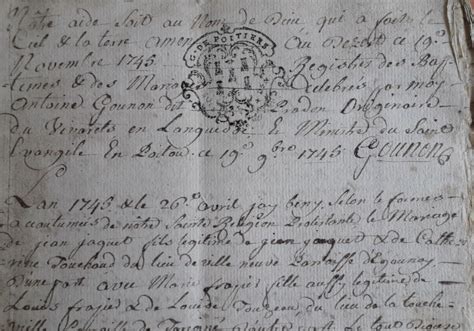 Nôtre aide soit au Nom de Dieu qui a fait le
Ciel & la terre amen Au Dezert ce 19e
Novembre 1745 Registre des Bap
G. DE POITIERS
temes & des Mariages celebres par moy
Antoine Gounon dit Pradon Originaire
du Vivarets en Languedoc & Ministre du Saint
Evangile En Poitou ce 19e 9bre 1745 Gounon
Lan 1745 & le 26e avril jay beny selon le formes
accoutumées de notre Sainte Religion Protestante le Mariage
de jean jaquet fils legitime de jean jaquet & de Cathe
rine Touchaud du lieu de ville neuve
dune part avec Marie frajies fille aussy legitime de
Louis frajies & de Louise du lieu de la touche